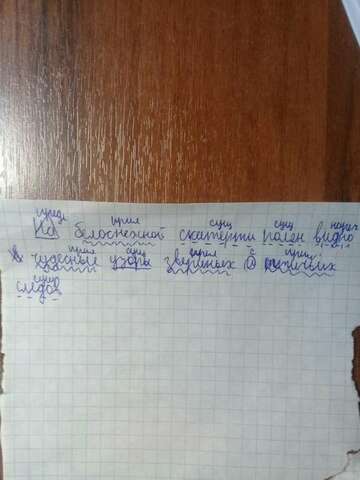 предл прил сущ сущ нареч
На белоснежной скатерти полян видно
прил сущ прил с прил
чудесные узоры звериных и птичьих
сущ
следов